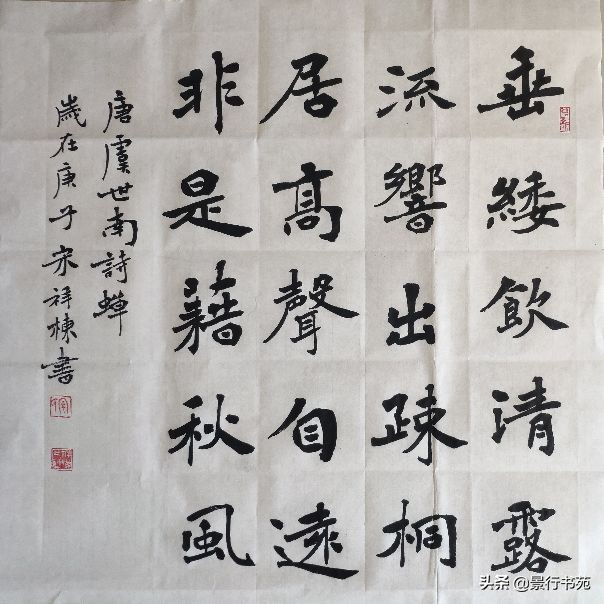 垂緌飲清露
流響出疎桐
居高聲自遠
非是藉秋風
唐虞世南詩蟬
歲在庚子宋祥棟書
头条@景行书苑